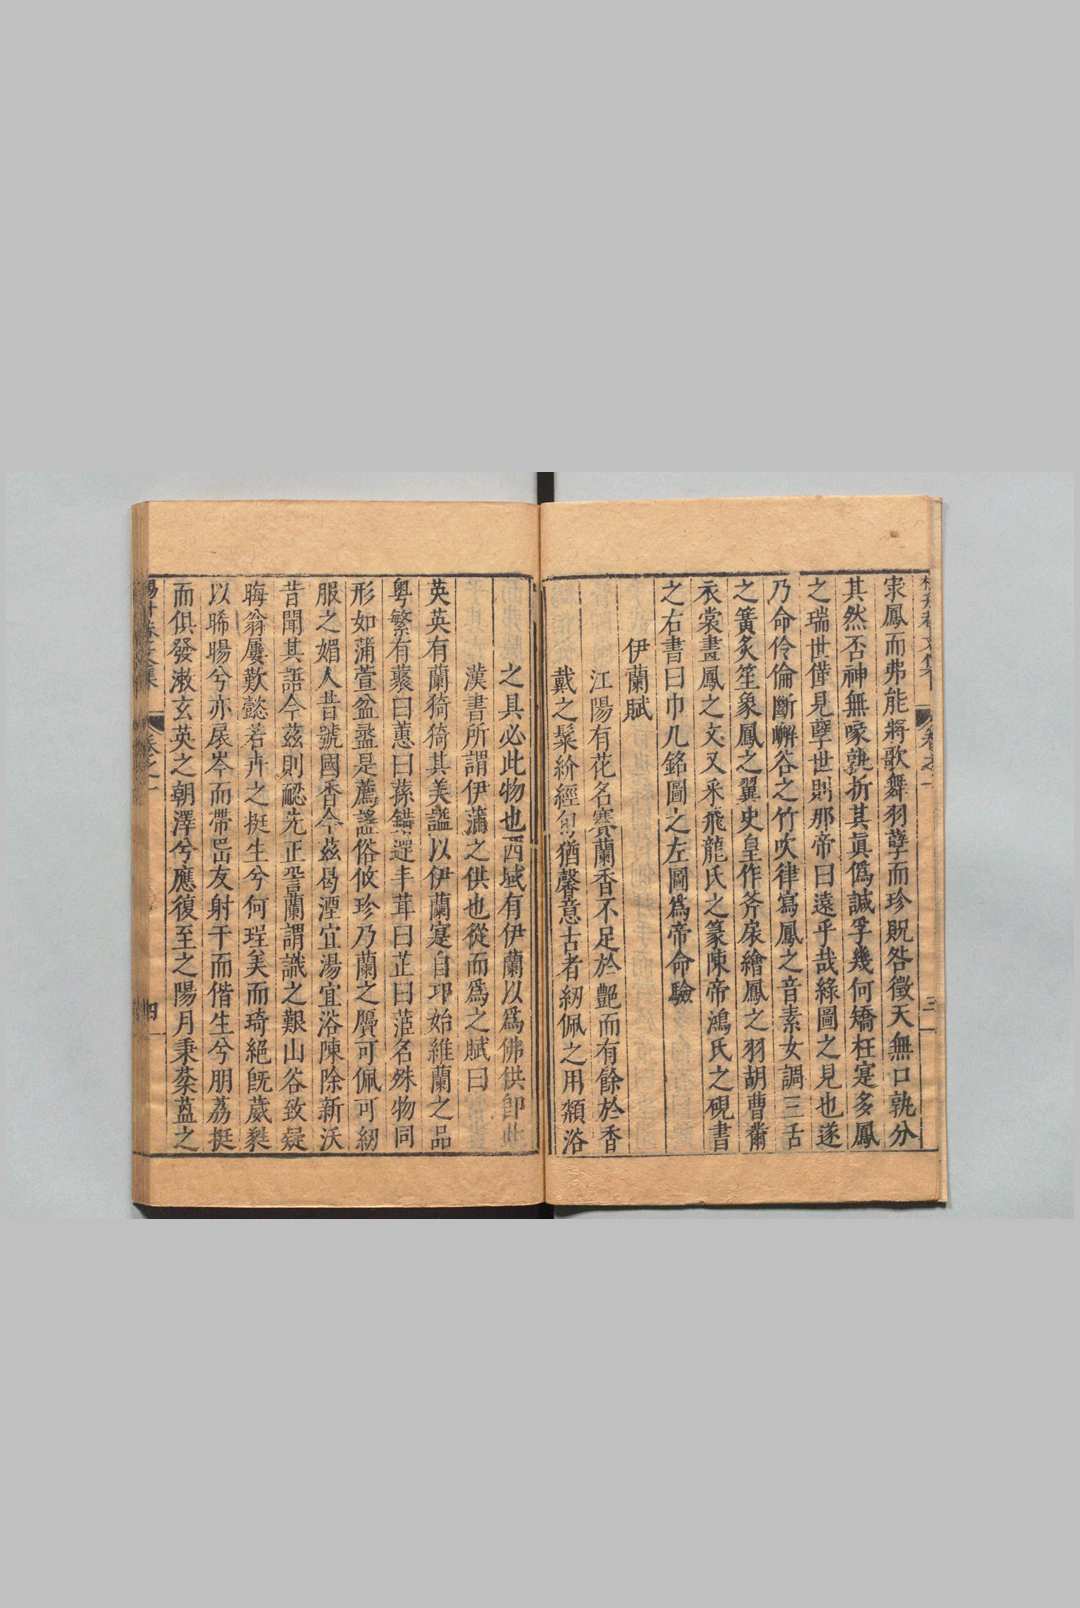 隶鳳而弗能將歌舞羽孽而珍貺咎徵天無口孰分
其然否神無喙孰折其眞僞誠孚幾何矯枉寔多鳳
之瑞世僅見孽世則那帝曰遠乎哉綠圖之見也遂
乃命伶倫斷嶰谷之竹吹律寫鳳之音素女調三舌
之簧炙笙象鳳之翼史皇作斧扆繪鳳之羽胡曹黹
衣裳畫鳳之文又采飛龍氏之篆陳帝鴻氏之硯書
之右書曰巾几銘圖之左圖爲帝命驗
伊蘭賦
江陽有花名賽蘭香不足於艶而有餘於香
戴之髹紒經旬猶馨意古者紉佩之用頮浴
之具必此物也西域有伊蘭以爲佛供卽
漢書所謂伊蒲之供也從而爲之賦曰
英英有蘭猗猗其美謐以伊蘭寔自邛始維蘭之品
粤繁有藂曰蕙曰蓀錯遻丰茸曰芷曰茝名殊物同
形如蒲萱盆盎是薦謐俗攸珍乃蘭之贗可佩可紉
服之媚人昔號國香今茲曷湮宜湯宜浴陳除新沃
昔聞其語今茲則覷先正訔蘭謂識之艱山谷致疑
晦翁屢歎懿若卉之挺生兮何珵美而琦絕旣葳甤
以晞暘兮亦扆岑而帶嵒友射干而偕生兮朋荔挺
而俱發漱玄英之朝澤兮應復至之陽月秉蘂葢之
卷之一
四
三